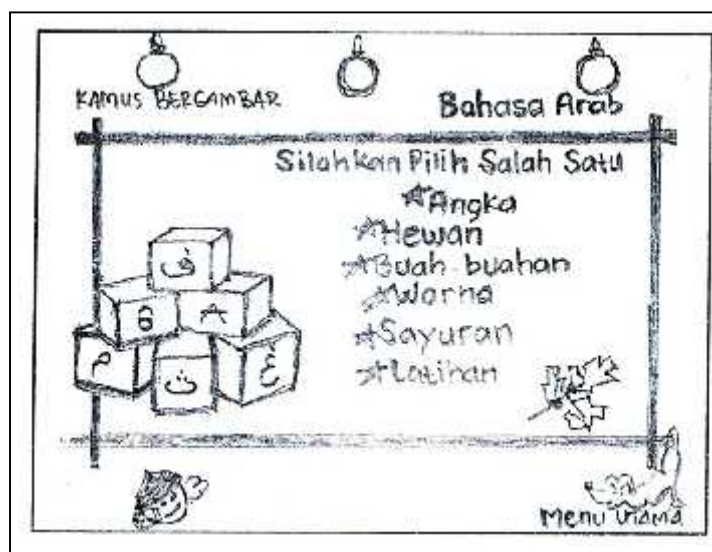 KAMUS BERGAMBAR
Bahasa Arab
Silahkan Pilih Salah Satu
Angka
Hewan
Buah-buahan
Warna
Sayuran
Latihan
ف
B A
م ث غ
Menu Utama